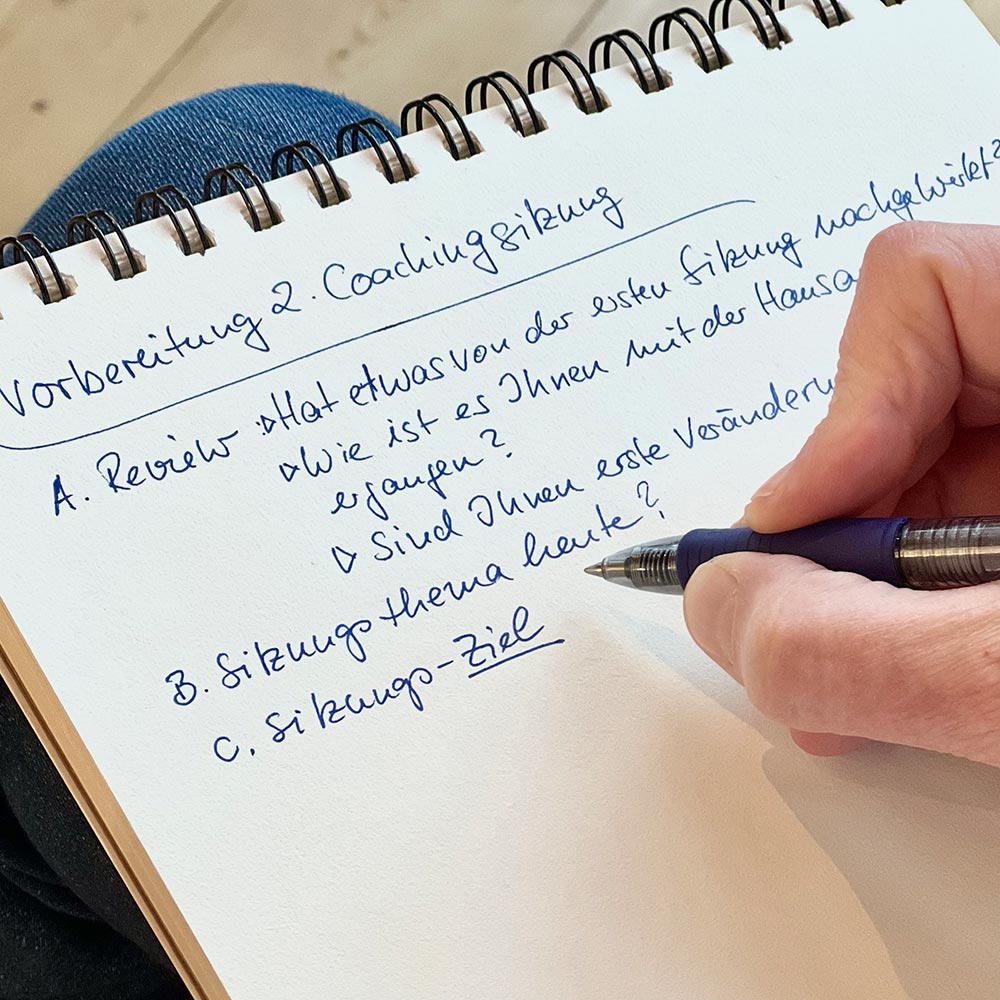 Vorbereitung 2. Coachingsitzung
A. Review: ▷Hat etwas von der ersten Sitzung nachgewirkt?
▷Wie ist es Ihnen mit der Hausa
ergangen?
▷ Sind Ihnen erste Veränderu
B. Sitzungsthema heute?
C. Sitzungs-Ziel